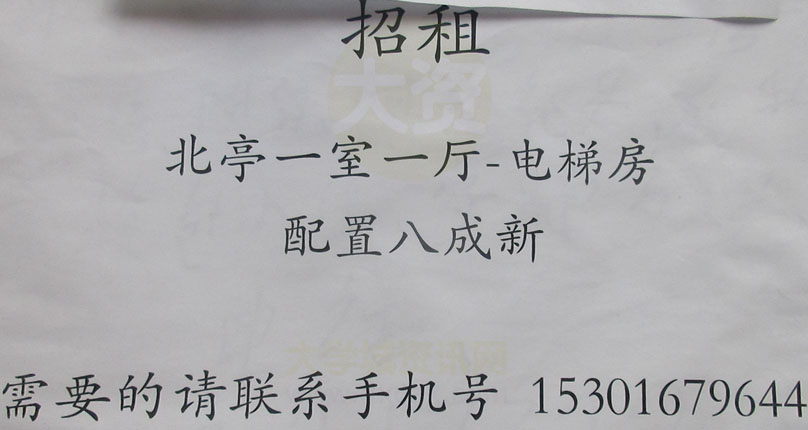 招租
大资
北亭一室一厅-电梯房
配置八成新
需要的请联系手机号 15301679644